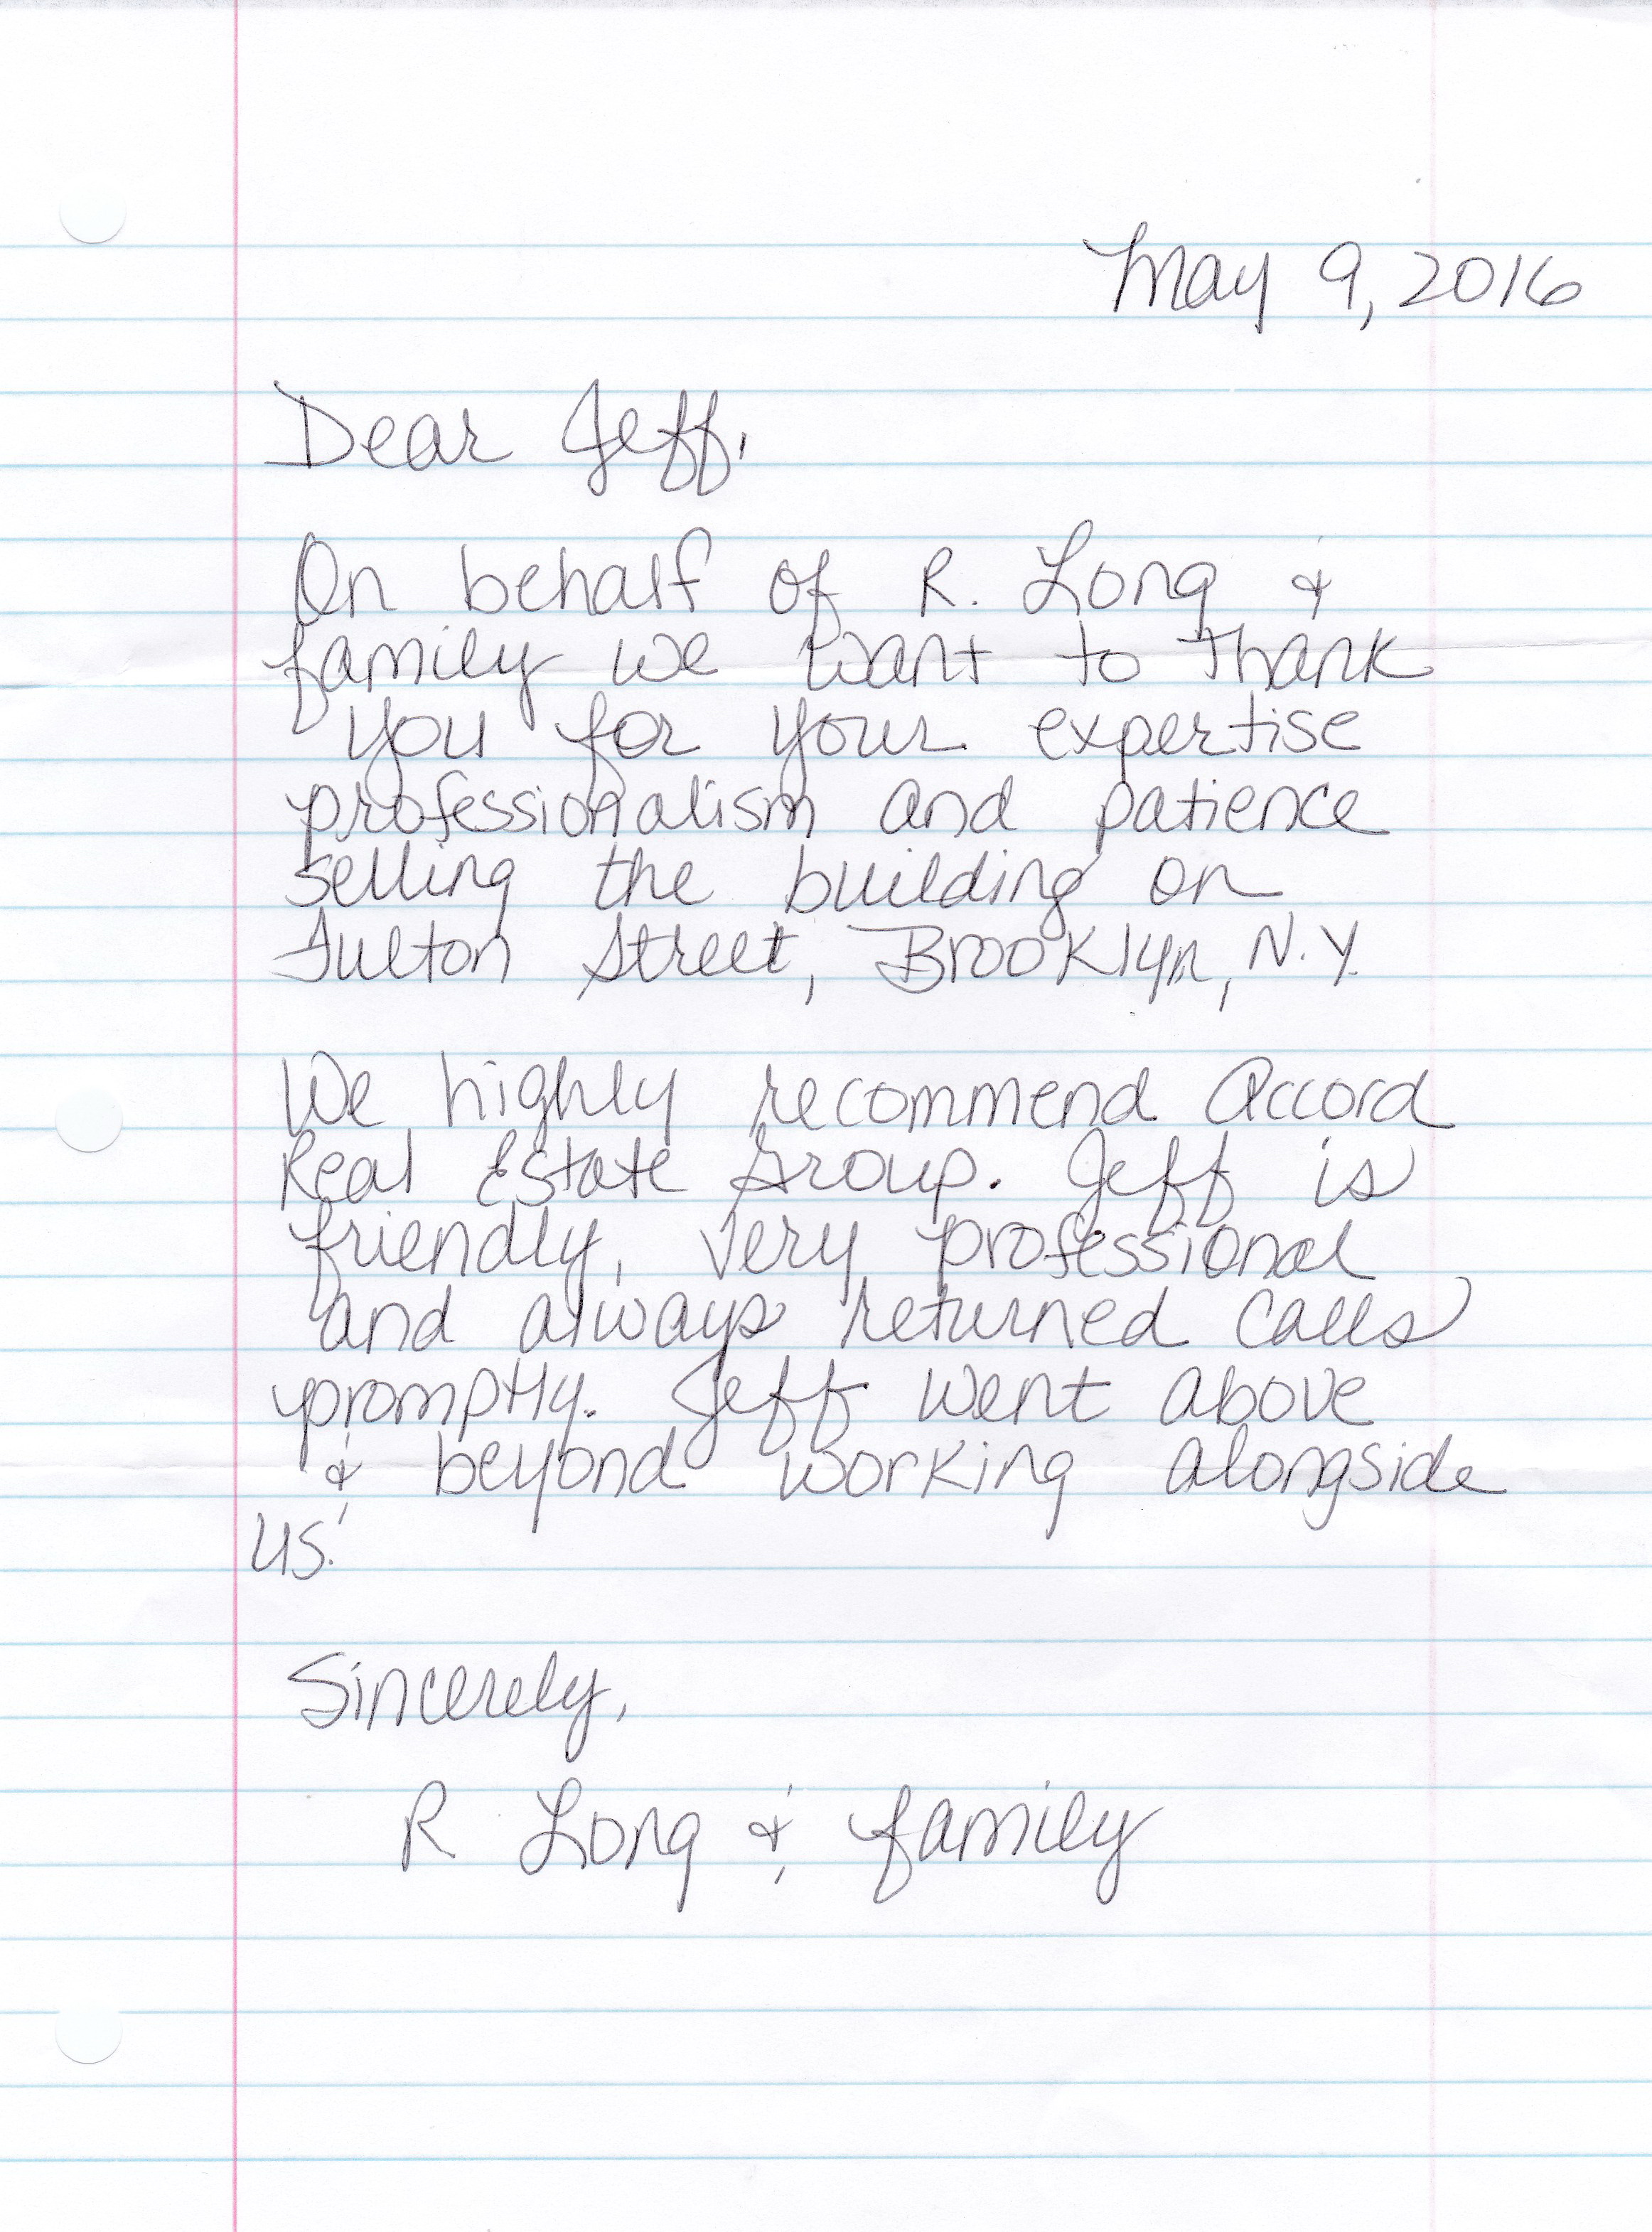 May 9, 2016
Dear Jeff,
On behalf of R. Long &
family we want to thank
you for your expertise
professionalism and patience
selling the building on
Fulton Street, Brooklyn, N.Y.
We highly recommend Accord
Real Estate Group. Jeff is
friendly, very professional
and always returned calls
promptly. Jeff went above
& beyond working alongside
us.
Sincerely,
R Long & family